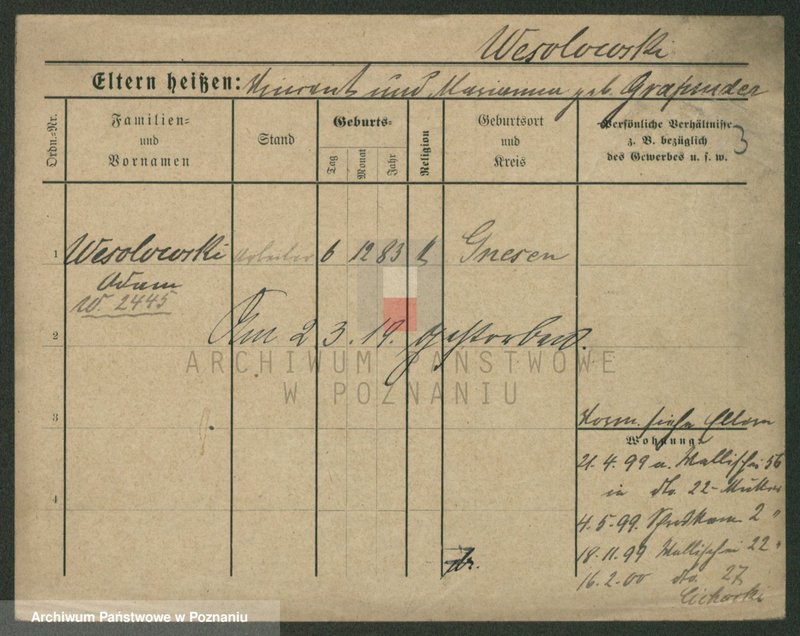 Wesolowski
Eltern heißen: Vincent und Marianna geb. Grafunder
3
Ordn.-Nr.
Familien- und Vornamen
Stand
Geburts-
Tag
Monat
Jahr
Religion
Geburtsort und Kreis
Persönliche Verhältnisse z. B. bezüglich des Gewerbes u. s. w.
1 Wesolowski Arbeiter 6 12 83 k Gnesen
Adam
W. 2445
2 Am 2 3. 19. gestorben.
ARCHIWUM PAŃSTWOWE
W POZNANIU
3 siehe Eltern
Wohnung:
21.4.99 a. Wallischei 56
in dto. 22- Mutter
4.5.99. 2 "
18.11.99 Wallischei 22 "
4 16.2.00 dto. 27
Cichocki
Archiwum Państwowe w Poznaniu